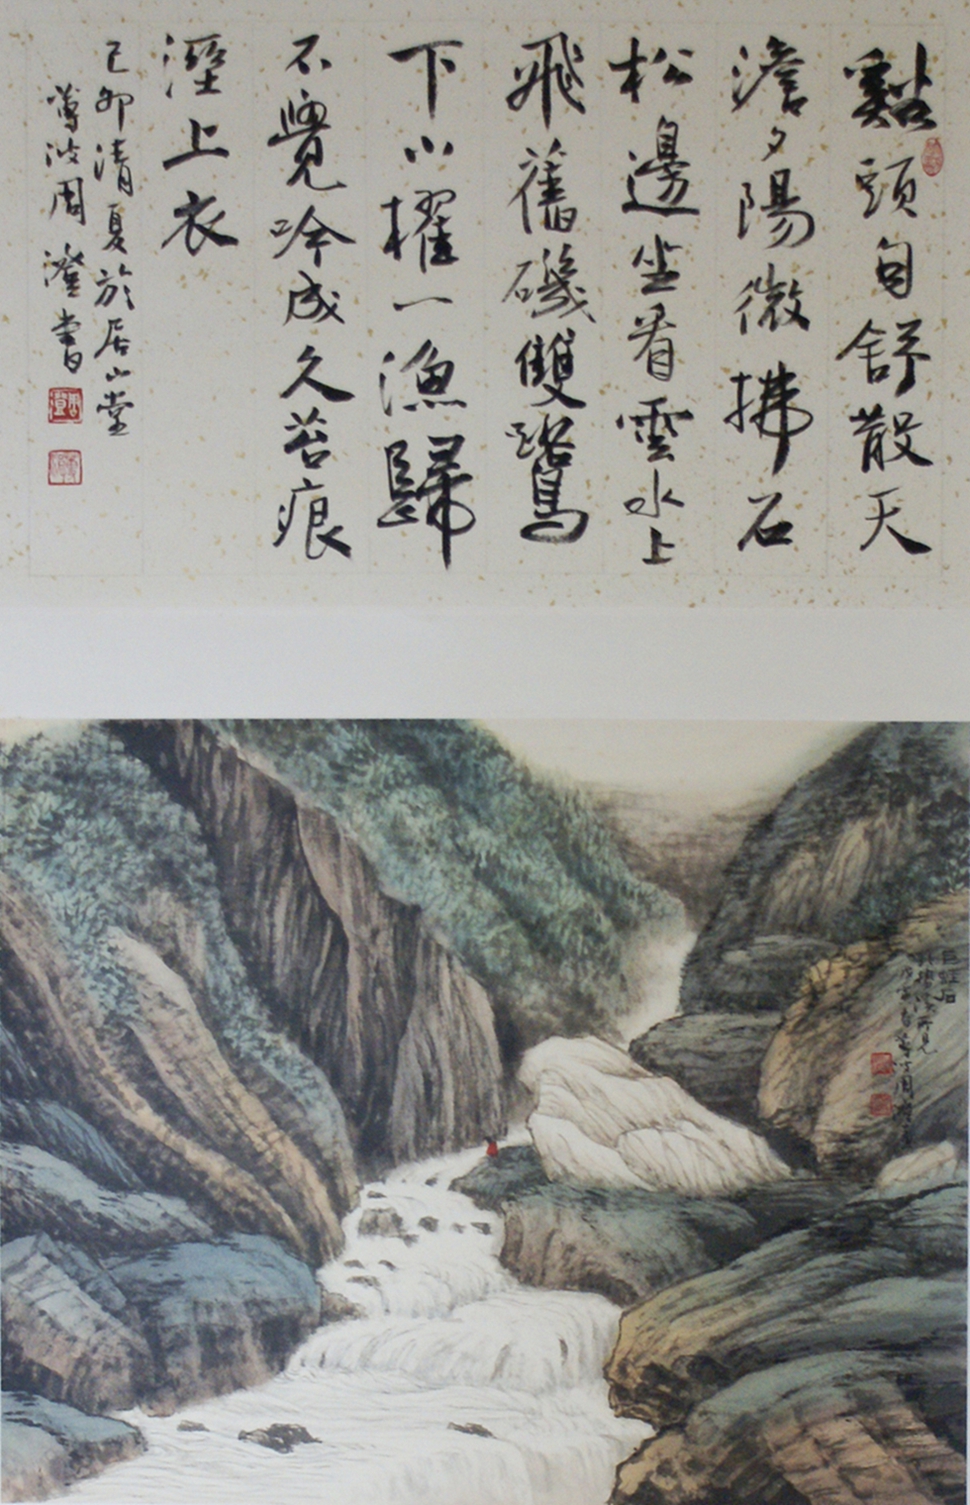 谿頭自舒散天
澹夕陽微拂石
松邊坐看雲水上
飛舊磯雙鷺
下小櫂一漁歸
不覺吟成久苔痕
溼上衣
己卯清夏於居山堂
蓴波周澄書
石
所見
周